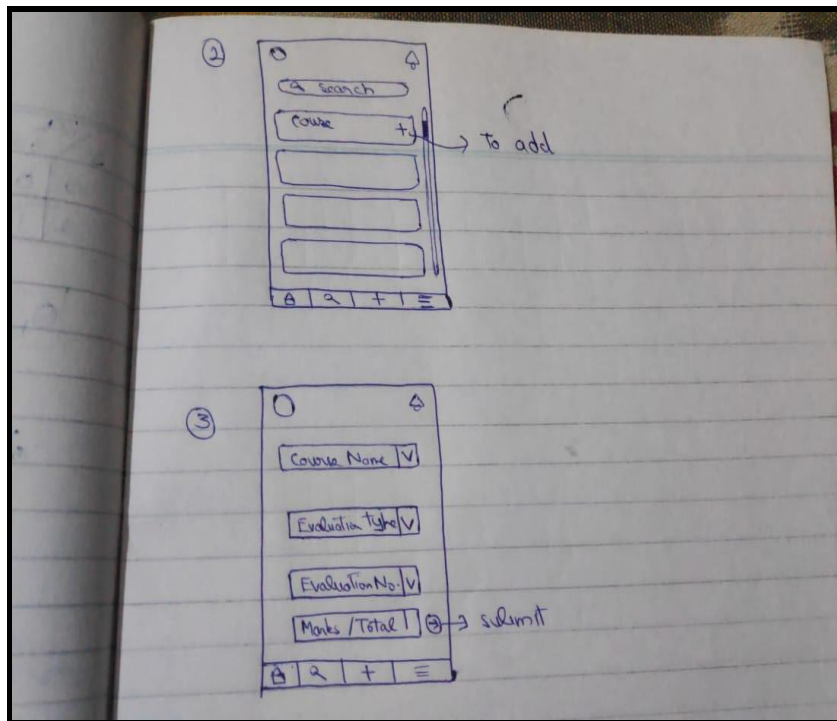 2
Search
Course +
To add
+
3
Course Name
Evaluation type
Evaluation No.
Marks / Total
submit
+